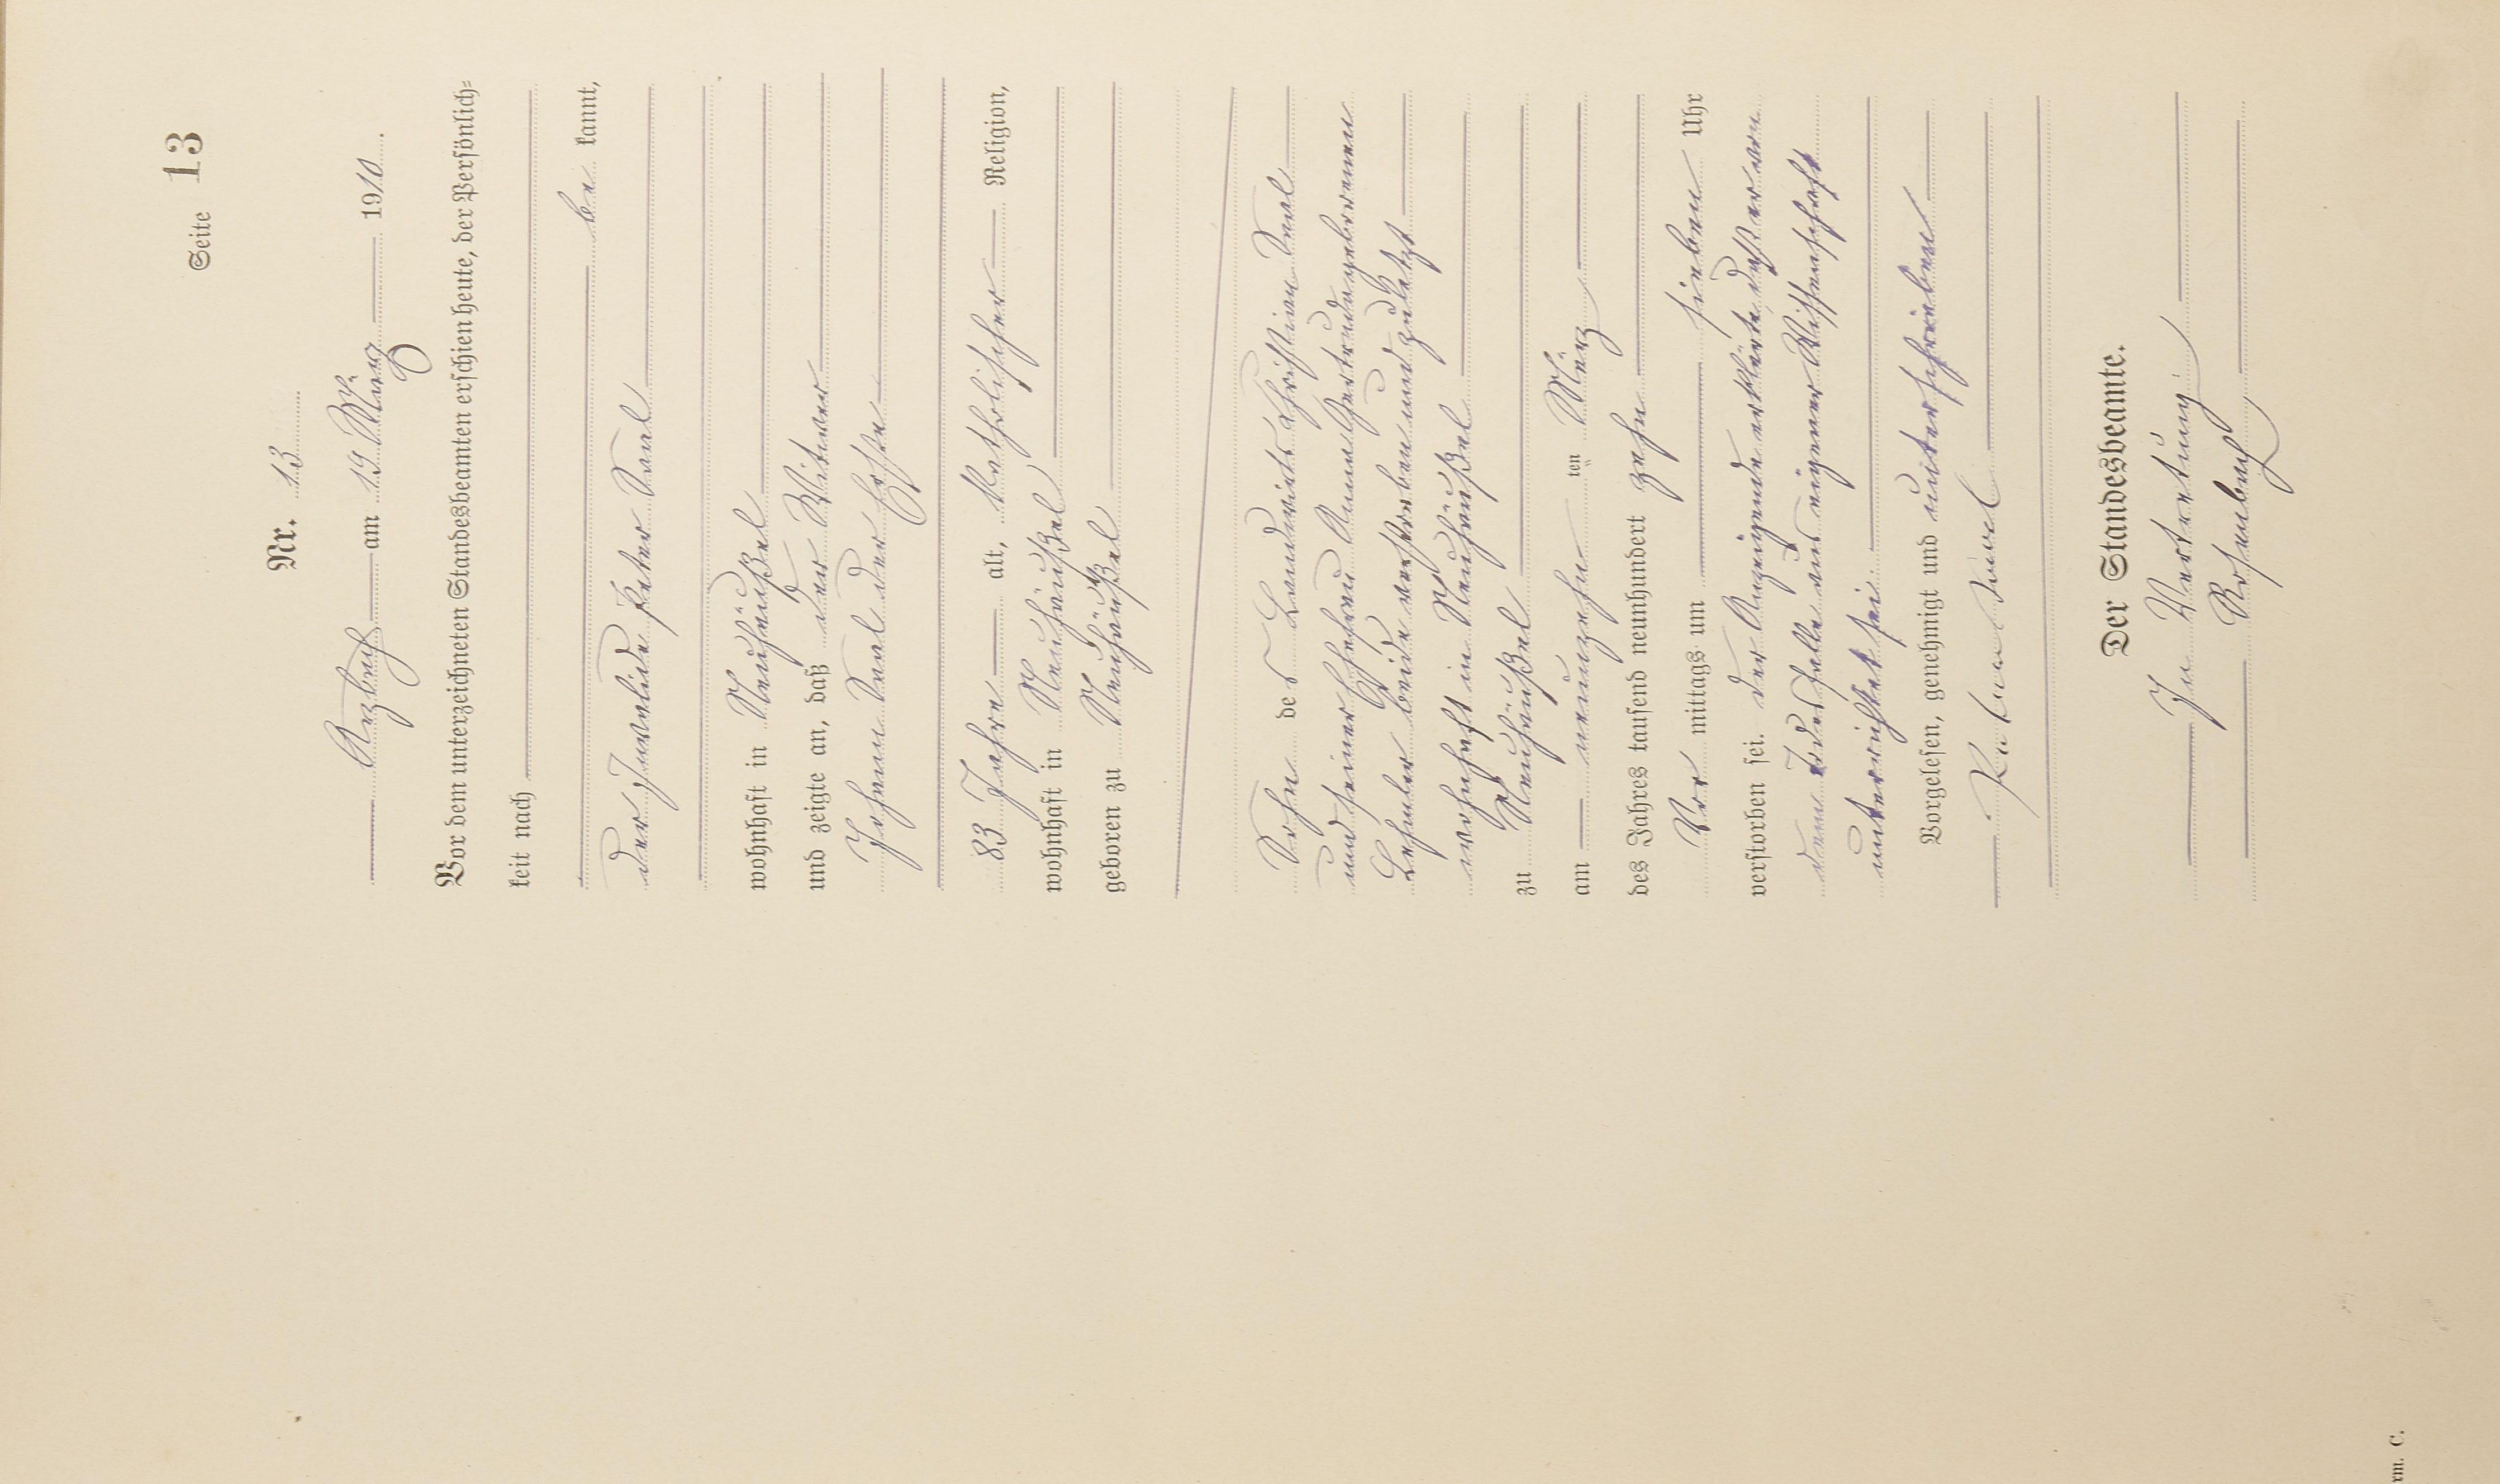 Seite 13
Nr. 13
Arzbach am 19 März 1910.
Vor dem unterzeichneten Standesbeamten erschien heute, der Persönlich-
keit nach
be kannt,
der Invalide Peter Saal
wohnhaft in Neuhäußel
und zeigte an, daß der Witwer
Johann Saal der Erste
83 Jahre alt, katholischer Religion,
wohnhaft in Neuhäußel
geboren zu Neuhäußel
Sohn des Landwirts Christian Saal
und seiner Ehefrau Anna Gertrud geborenen
beide verstorben und zuletzt
wohnhaft in Neuhäußel
zu Neuhäußel
am neunzehn ten März
des Jahres tausend neunhundert zehn
Vor mittags um sieben Uhr
verstorben sei. Der Anzeigende erklärte, daß er von
dem Todesfalle aus eigener Wissenschaft
unterrichtet sei.
Vorgelesen, genehmigt und unterschrieben
Saal
Der Standesbeamte.
In Vertretung